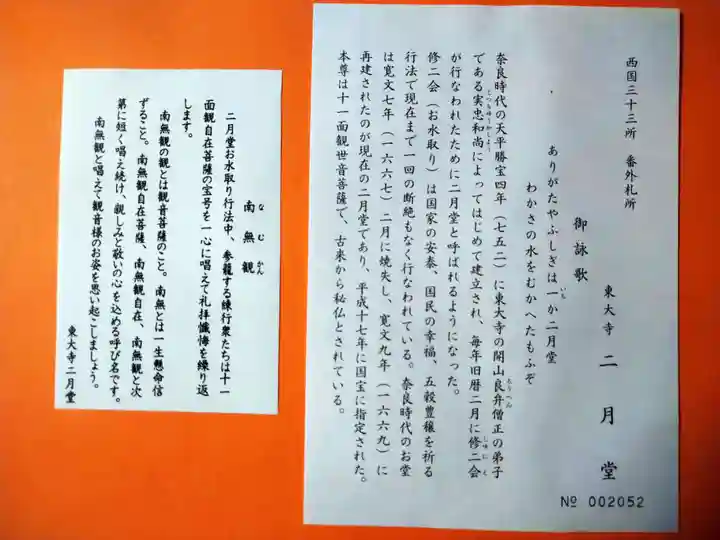 西国三十三所 番外札所
東大寺 二月堂
御詠歌
ありがたやふしぎは一か二月堂
いち
わかさの水をむかへたもふぞ
奈良時代の天平勝宝四年(七五二)に東大寺の開山良弁僧正の弟子
ろうべん
である実忠和尚によってはじめて建立され、毎年旧暦二月に修二会
じつちゆうかしよう
しゆにえ
が行なわれたために二月堂と呼ばれるようになった。
修二会(お水取り)は国家の安泰、国民の幸福、五穀豊穣を祈る
行法で現在まで一回の断絶もなく行なわれている。奈良時代のお堂
は寛文七年(一六六七)二月に焼失し、寛文九年(一六六九)に
再建されたのが現在の二月堂であり、平成十七年に国宝に指定された。
本尊は十一面観世音菩薩で、古来から秘仏とされている。
№ 002052
南無観
なむかん
二月堂お水取り行法中、参籠する練行衆たちは十一
面観自在菩薩の宝号を一心に唱えて礼拝懺悔を繰り返
します。
南無観の観とは観音菩薩のこと。南無とは一生懸命信
ずること。南無観自在菩薩、南無観自在、南無観と次
第に短く唱え続け、親しみと敬いの心を込める呼び名です。
南無観と唱えて観音様のお姿を思い起こしましょう。
東大寺二月堂